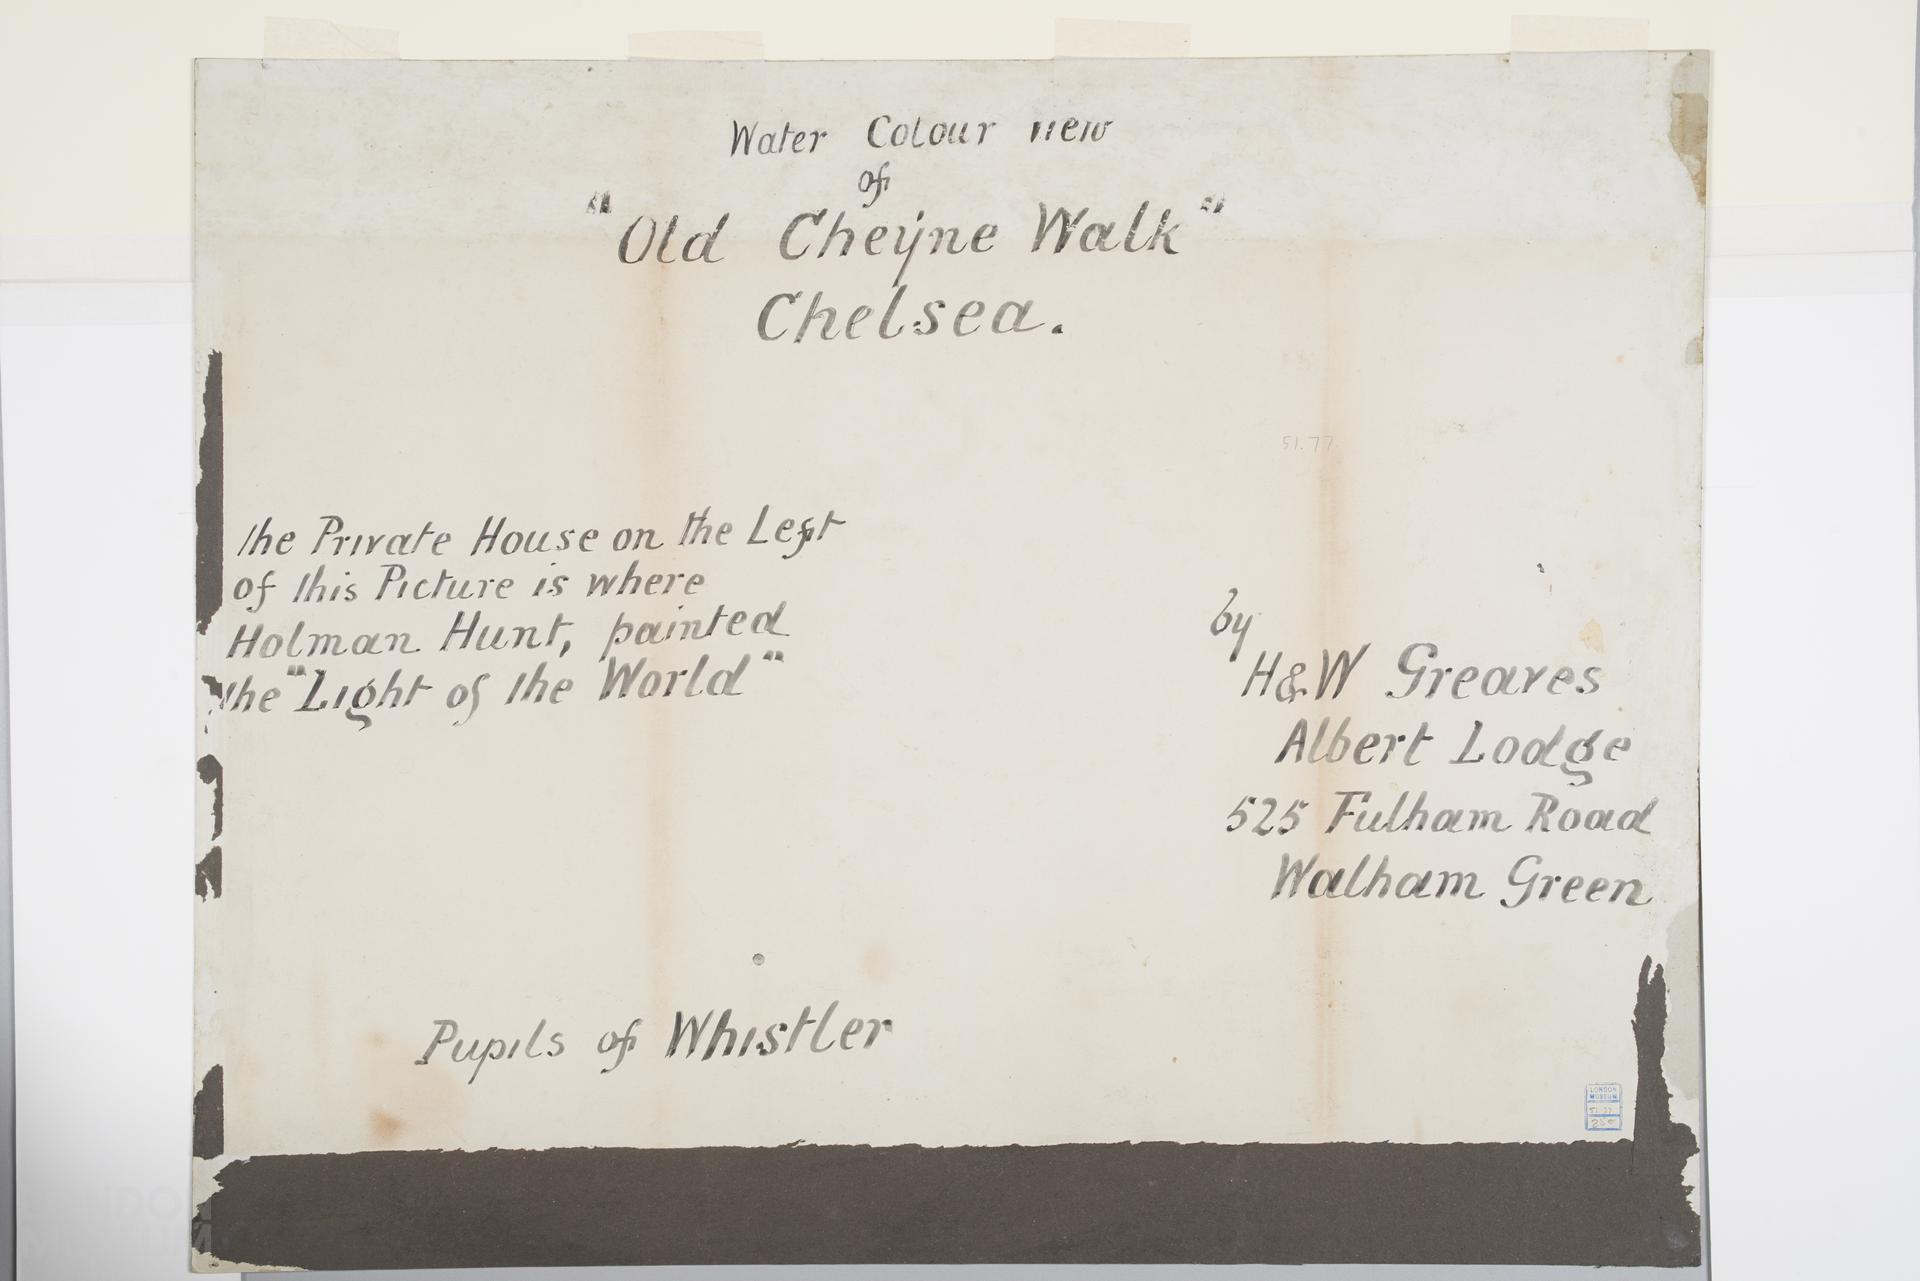 Water Colour view
of
"Old Cheyne Walk"
Chelsea.
51.77.
the Private House on the Left
of this Picture is where
Holman Hunt, painted
the "Light of the World"
by
H&W Greaves
Albert Lodge
525 Fulham Road
Walham Green
Pupils of Whistler
LONDON
MUSEUM
51.77
LONDON
MUSEUM